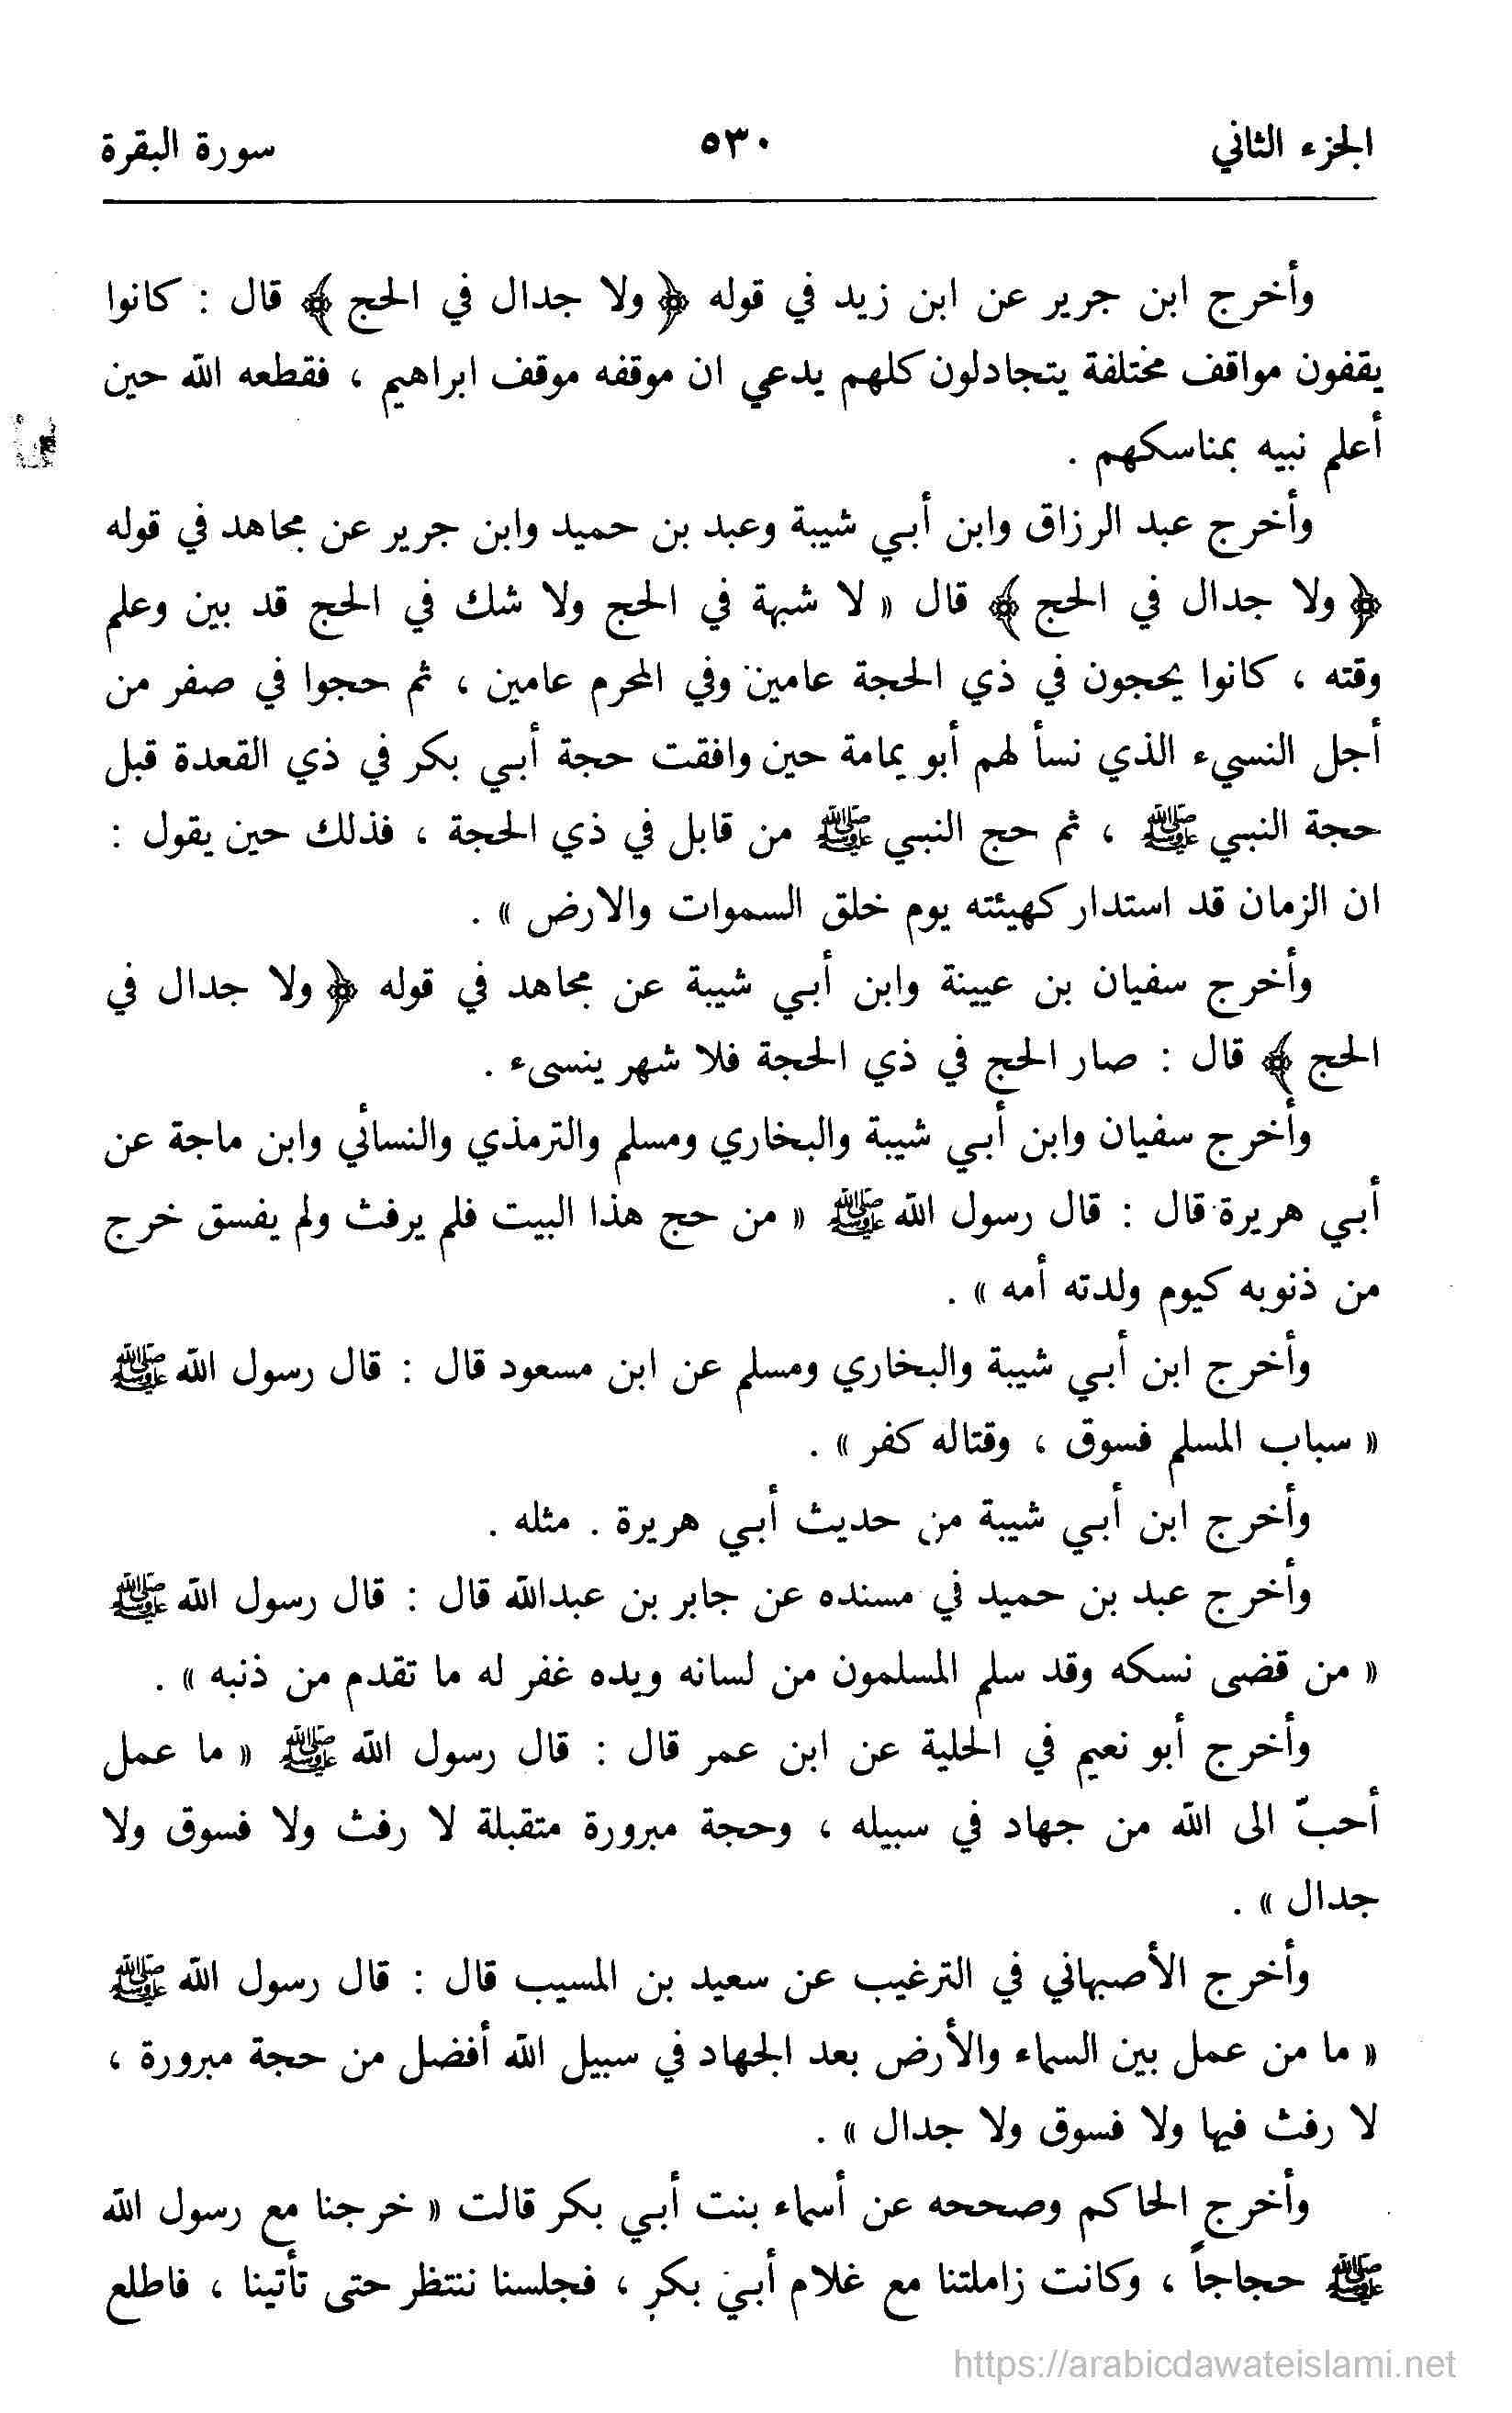 الجزء الثاني ٥٣٠ سورة البقرة
وأخرج ابن جرير عن ابن زيد في قوله ﴿ ولا جدال في الحج ﴾ قال : كانوا
يقفون مواقف مختلفة يتجادلون كلهم يدعي ان موقفه موقف ابراهيم ، فقطعه الله حين
أعلم نبيه بمناسكهم .
وأخرج عبد الرزاق وابن أبي شيبة وعبد بن حميد وابن جرير عن مجاهد في قوله
﴿ ولا جدال في الحج ﴾ قال « لا شبهة في الحج ولا شك في الحج قد بين وعلم
وقته ، كانوا يحجون في ذي الحجة عامين وفي المحرم عامين ، ثم حجوا في صفر من
أجل النسيء الذي نسأ لهم أبو يمامة حين وافقت حجة أبي بكر في ذي القعدة قبل
حجة النبي ﷺ ، ثم حج النبي ﷺ من قابل في ذي الحجة ، فذلك حين يقول :
ان الزمان قد استدار كهيئته يوم خلق السموات والارض » .
وأخرج سفيان بن عيينة وابن أبي شيبة عن مجاهد في قوله ﴿ ولا جدال في
الحج ﴾ قال : صار الحج في ذي الحجة فلا شهر ينسىء .
وأخرج سفيان وابن أبي شيبة والبخاري ومسلم والترمذي والنسائي وابن ماجة عن
أبي هريرة قال : قال رسول الله ﷺ « من حج هذا البيت فلم يرفث ولم يفسق خرج
من ذنوبه كيوم ولدته أمه » .
وأخرج ابن أبي شيبة والبخاري ومسلم عن ابن مسعود قال : قال رسول الله ﷺ
« سباب المسلم فسوق ، وقتاله كفر » .
وأخرج ابن أبي شيبة من حديث أبي هريرة . مثله .
وأخرج عبد بن حميد في مسنده عن جابر بن عبدالله قال : قال رسول الله ﷺ
« من قضى نسكه وقد سلم المسلمون من لسانه ويده غفر له ما تقدم من ذنبه » .
وأخرج أبو نعيم في الحلية عن ابن عمر قال : قال رسول الله ﷺ « ما عمل
أحبّ الى الله من جهاد في سبيله ، وحجة مبرورة متقبلة لا رفث ولا فسوق ولا
جدال » .
وأخرج الأصبهاني في الترغيب عن سعيد بن المسيب قال : قال رسول الله ﷺ
« ما من عمل بين السماء والأرض بعد الجهاد في سبيل الله أفضل من حجة مبرورة ،
لا رفث فيها ولا فسوق ولا جدال » .
وأخرج الحاكم وصححه عن أسماء بنت أبي بكر قالت « خرجنا مع رسول الله
ﷺ حجاجاً ، وكانت زاملتنا مع غلام أبي بكر ، فجلسنا ننتظر حتى تأتينا ، فاطلع
https://arabicdawateislami.net